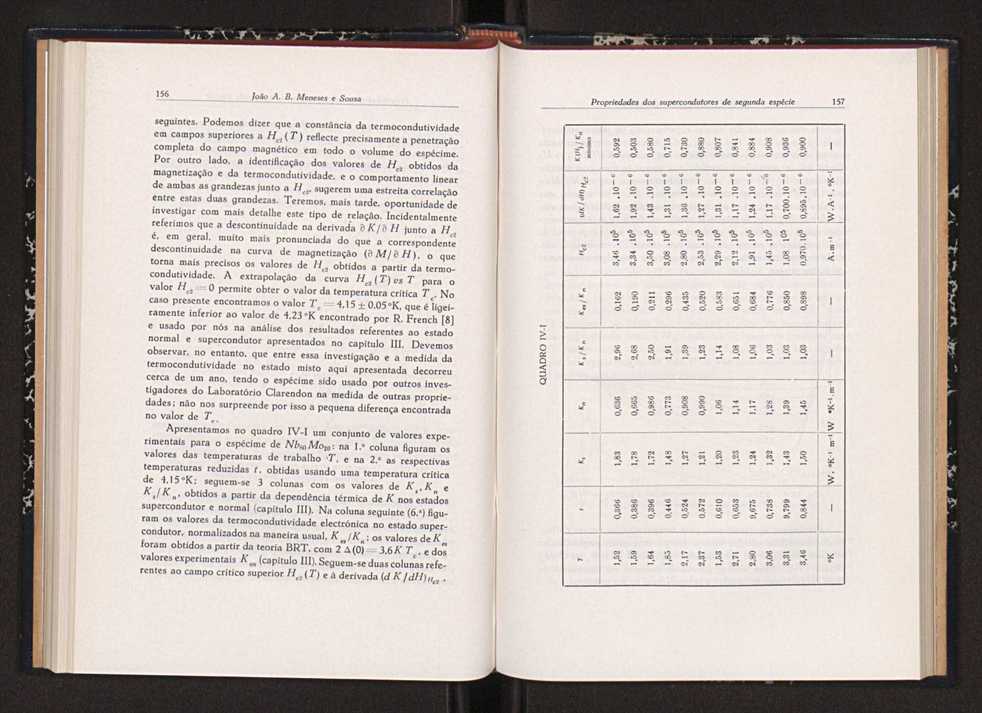 156
João A. B. Meneses e Sousa
seguintes. Podemos dizer que a constância da termocondutividade
em campos superiores a H_c2 (T) reflecte precisamente a penetração
completa do campo magnético em todo o volume do espécime.
Por outro lado, a identificação dos valores de H_c2 obtidos da
magnetização e da termocondutividade, e o comportamento linear
de ambas as grandezas junto a H_c2, sugerem uma estreita correlação
entre estas duas grandezas. Teremos, mais tarde, oportunidade de
investigar com mais detalhe este tipo de relação. Incidentalmente
referimos que a descontinuidade na derivada ∂ K/∂ H junto a H_c2
é, em geral, muito mais pronunciada do que a correspondente
descontinuidade na curva de magnetização (∂ M/∂ H), o que
torna mais precisos os valores de H_c2 obtidos a partir da termo-
condutividade. A extrapolação da curva H_c2 (T) vs T para o
valor H_c2 = 0 permite obter o valor da temperatura crítica T_c. No
caso presente encontramos o valor T_c = 4,15 ± 0.05 °K, que é ligei-
ramente inferior ao valor de 4,23 °K encontrado por R. French [8]
e usado por nós na análise dos resultados referentes ao estado
normal e supercondutor apresentados no capítulo III. Devemos
observar, no entanto, que entre essa investigação e a medida da
termocondutividade no estado misto aqui apresentada decorreu
cerca de um ano, tendo o espécime sido usado por outros inves-
tigadores do Laboratório Clarendon na medida de outras proprie-
dades; não nos surpreende por isso a pequena diferença encontrada
no valor de T_c.
Apresentamos no quadro IV-I um conjunto de valores expe-
rimentais para o espécime de Nb80 Mo20: na 1.ª coluna figuram os
valores das temperaturas de trabalho T, e na 2.ª as respectivas
temperaturas reduzidas t, obtidas usando uma temperatura crítica
de 4,15 °K; seguem-se 3 colunas com os valores de K_s, K_n e
K_s/K_n, obtidos a partir da dependência térmica de K nos estados
supercondutor e normal (capítulo III). Na coluna seguinte (6.ª) figu-
ram os valores da termocondutividade electrónica no estado super-
condutor, normalizados na maneira usual, K_es/K_n; os valores de K_es
foram obtidos a partir da teoria BRT, com 2 Δ (0) = 3,6 K T_c, e dos
valores experimentais K_en (capítulo III). Seguem-se duas colunas refe-
rentes ao campo crítico superior H_c2 (T) e à derivada (d K/dH)_Hc2,
Propriedades dos supercondutores de segunda espécie
157
QUADRO IV-I
T t K_s K_n K_s / K_n K_es / K_n H_c2 K(H)/ K_n
1,52 0,366 1,83 0,636 2,96 0,162 3,46 .10^5 1,62 .10^-6 0,592
1,59 0,386 1,78 0,665 2,68 0,190 3,34 .10^5 1,92 .10^-6 0,503
1,64 0,396 1,72 0,986 2,50 0,211 3,50 .10^5 1,43 .10^-6 0,580
1,85 0,446 1,48 0,773 1,91 0,296 3,08 .10^5 1,31 .10^-6 0,715
2,17 0,524 1,27 0,908 1,39 0,435 2,80 .10^5 1,36 .10^-6 0,730
2,37 0,572 1,21 0,990 1,23 0,520 2,53 .10^5 1,27 .10^-6 0,880
1,53 0,610 1,20 1,06 1,14 0,583 2,29 .10^5 1,31 .10^-6 0,807
2,71 0,653 1,23 1,14 1,08 0,651 2,12 .10^5 1,17 .10^-6 0,841
2,80 9,675 1,24 1,17 1,06 0,684 1,91 .10^5 1,24 .10^-6 0,884
3,06 0,738 1,32 1,28 1,03 0,776 1,45 .10^5 1,17 .10^-6 0,908
3,31 9,799 1,43 1,39 1,03 0,850 1,08 10^5 0,700.10^-6 0,936
3,46 0,844 1,50 1,45 1,03 0,898 0,970.10^5 0,895.10^-6 0,900
°K — W . °K^-1 m^-1 W °K^-1.m^-1 — A.m^-1 W.A^-1.°K^-1 —